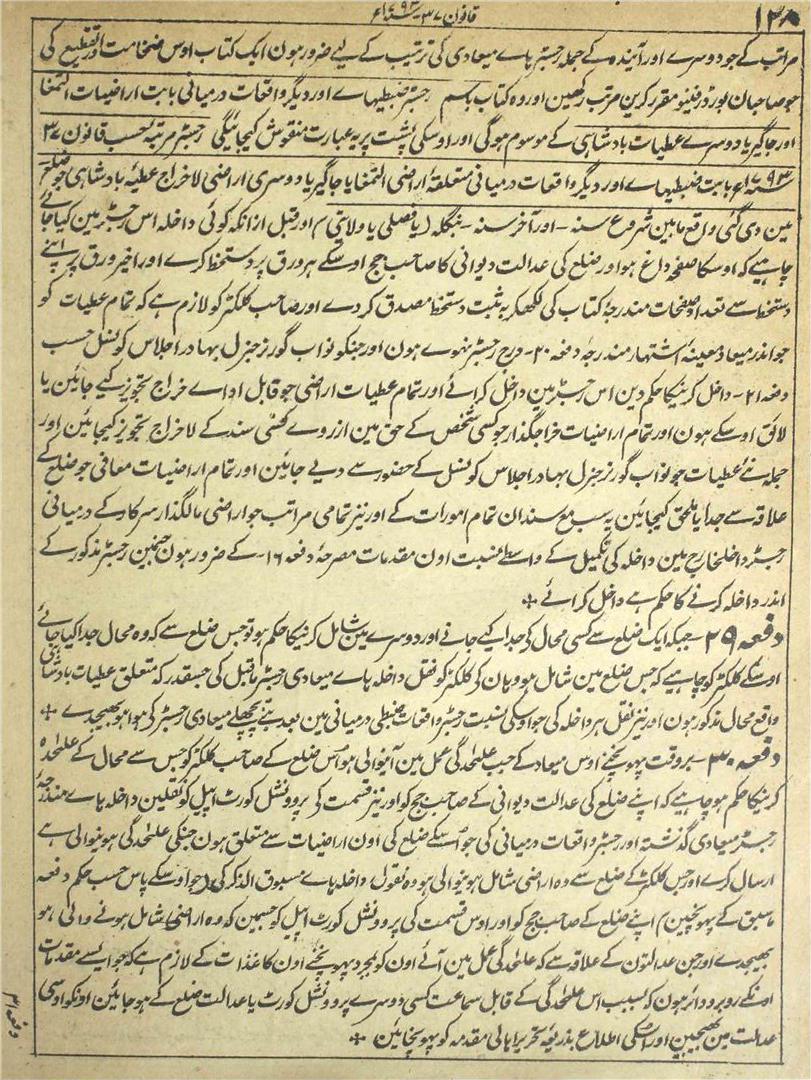 ۱۳۸
قانون ۳۷ سنہ ۱۷۹۳ع
مراتب کے جو دوسرے اور آیندہ کے جملہ رجسٹر ہاے میعادی کی ترتیب کے لیے ضرور ہون ایک کتاب اوس ضخامت اور تقطیع کی
جو صاحبان بورڈ رفینیو مقرر کرین مرتب رکھین اور وہ کتاب باسم رجسٹر ضبطیہاے اور دیگر واقعات درمیانی بابت اراضیات التمغا
اور جاگیر یا دوسرے عطیات بادشاہی کے موسوم ہوگی اور اوسکی پشت پر یہ عبارت منقوش کیجائیگی رجسٹر مرتبہ حسب قانون ۳۷
سنہ ۱۷۹۳ع بابت ضبطیہاے اور دیگر واقعات درمیانی متعلقۂ اراضی التمغا یا جاگیر یا دوسری اراضی لاخراج عطیۂ بادشاہی جو ضلع
مین دی گئی واقع مابین شروع سنہ - اور آخر سنہ - بنگلہ (یا فصلی یا ولایتی) اور قبل ازانکہ کوئی داخلہ اس رجسٹر مین کیا جائے
چاہیے کہ اوسکا صفحہ داغ ہو اور ضلع کی عدالت دیوانی کا صاحب جج اوسکے ہر ورق پر دستخط کرے اور اخیر ورق پر اپنے
دستخط سے تعداد صفحات مندرجۂ کتاب کی لکھکر بہ ثبت دستخط مصدق کر دے اور صاحب کلکٹر کو لازم ہے کہ تمام عطیات کو
جو اندر میعاد معینۂ اشتہار مندرجۂ دفعہ ۲۰ - درج رجسٹر نہوے ہون اور جنکو نواب گورنر جنرل بہادر اجلاس کونسل حسب
دفعہ ۲۱ - داخل کرنیکا حکم دین اس رجسٹر مین داخل کرائے اور تمام عطیات اراضی جو قابل اداے خراج تجویز کیے جائین یا
لائق اوسکے ہون اور تمام اراضیات خراجگذار جو کسی شخص کے حق مین ازروے کسی سند کے لاخراج تجویز کیجائین اور
جملہ نئے عطیات جو نواب گورنر جنرل بہادر اجلاس کونسل کے حضور سے دیے جائین اور تمام اراضیات معافی جو ضلع کے
علاقہ سے جدا یا ملحق کیجائین یہ سب مع سند ان تمام امورات کے اور نیز تمامی مراتب جو اراضی مالگذار سرکار کے درمیانی
رجسٹر داخلخارج مین داخلہ کی تکمیل کے واسطے بنسبت اون مقدمات مصرحۂ دفعہ ۱۶ - کے ضرور ہون جنہین رجسٹر مذکور کے
اندر داخلہ کرنے کا حکم ہے داخل کرائے
دفعہ ۲۹ - جبکہ ایک ضلع سے کسی محال کی جدا کیے جانے اور دوسرے مین شامل کرنیکا حکم ہو تو جس ضلع سے کہ وہ محال جدا کیا جائے
اوسکے کلکٹر کو چاہیے کہ جس ضلع مین شامل ہو وہان کی کلکٹر کو نقل داخلہ ہاے میعادی رجسٹر ماقبل کی جسقدر کہ متعلق عطیات بادشاہی
واقع محال مذکور ہون اور نیز نقل ہر داخلہ کی جو اوسکی نسبت رجسٹر واقعات ضبطی درمیانی مین بعد بننے پچھلے میعادی رجسٹر کی ہوا ہو بھیجدے
دفعہ ۳۰ - بروقت پہونچنے اوس میعاد کے جب علیحدگی عمل مین آنیوالی ہو اس ضلع کے صاحب کلکٹر کو جس سے محال کے علیحدہ
کرنیکا حکم ہو چاہیے کہ اپنے ضلع کی عدالت دیوانی کے صاحب جج کو اور نیز قسمت کی پرووِنشل کورٹ اپیل کو نقلین داخلہ ہاے مندرجۂ
رجسٹر میعادی گذشتہ اور رجسٹر واقعات درمیانی کی جو اُسکے ضلع کی اون اراضیات سے متعلق ہون جنکی علیحدگی ہونیوالی ہے
ارسال کرے اور جس کلکٹر کے ضلع سے وہ اراضی شامل ہونیوالی ہو وہ نقول داخلہ ہاے مسبوق الذکر کی (جو اوسکے پاس حسب حکم دفعہ
ماسبق کے پہونچین) اپنے ضلع کے صاحب جج کو اور اوس قسمت کی پرووِنشل کورٹ اپیل کو جسمین کہ وہ اراضی شامل ہونے والی ہو
بھیجدے اور جن عدالتون کے علاقہ سے کہ علیحدگی عمل مین آئے اون کو بمجرد پہونچنے اون کاغذات کے لازم ہے کہ جو ایسے مقدمات
اونکے روبرو دائر ہون کہ بسبب اس علیحدگی کے قابل سماعت کسی دوسرے پرووِنشل کورٹ یا عدالت ضلع کے ہو جائین اونکو اوسی
عدالت مین بھیجین اور اسکی اطلاع بذریعۂ تحریر اہالی مقدمہ کو پہونچائین
دفعہ ۳۱